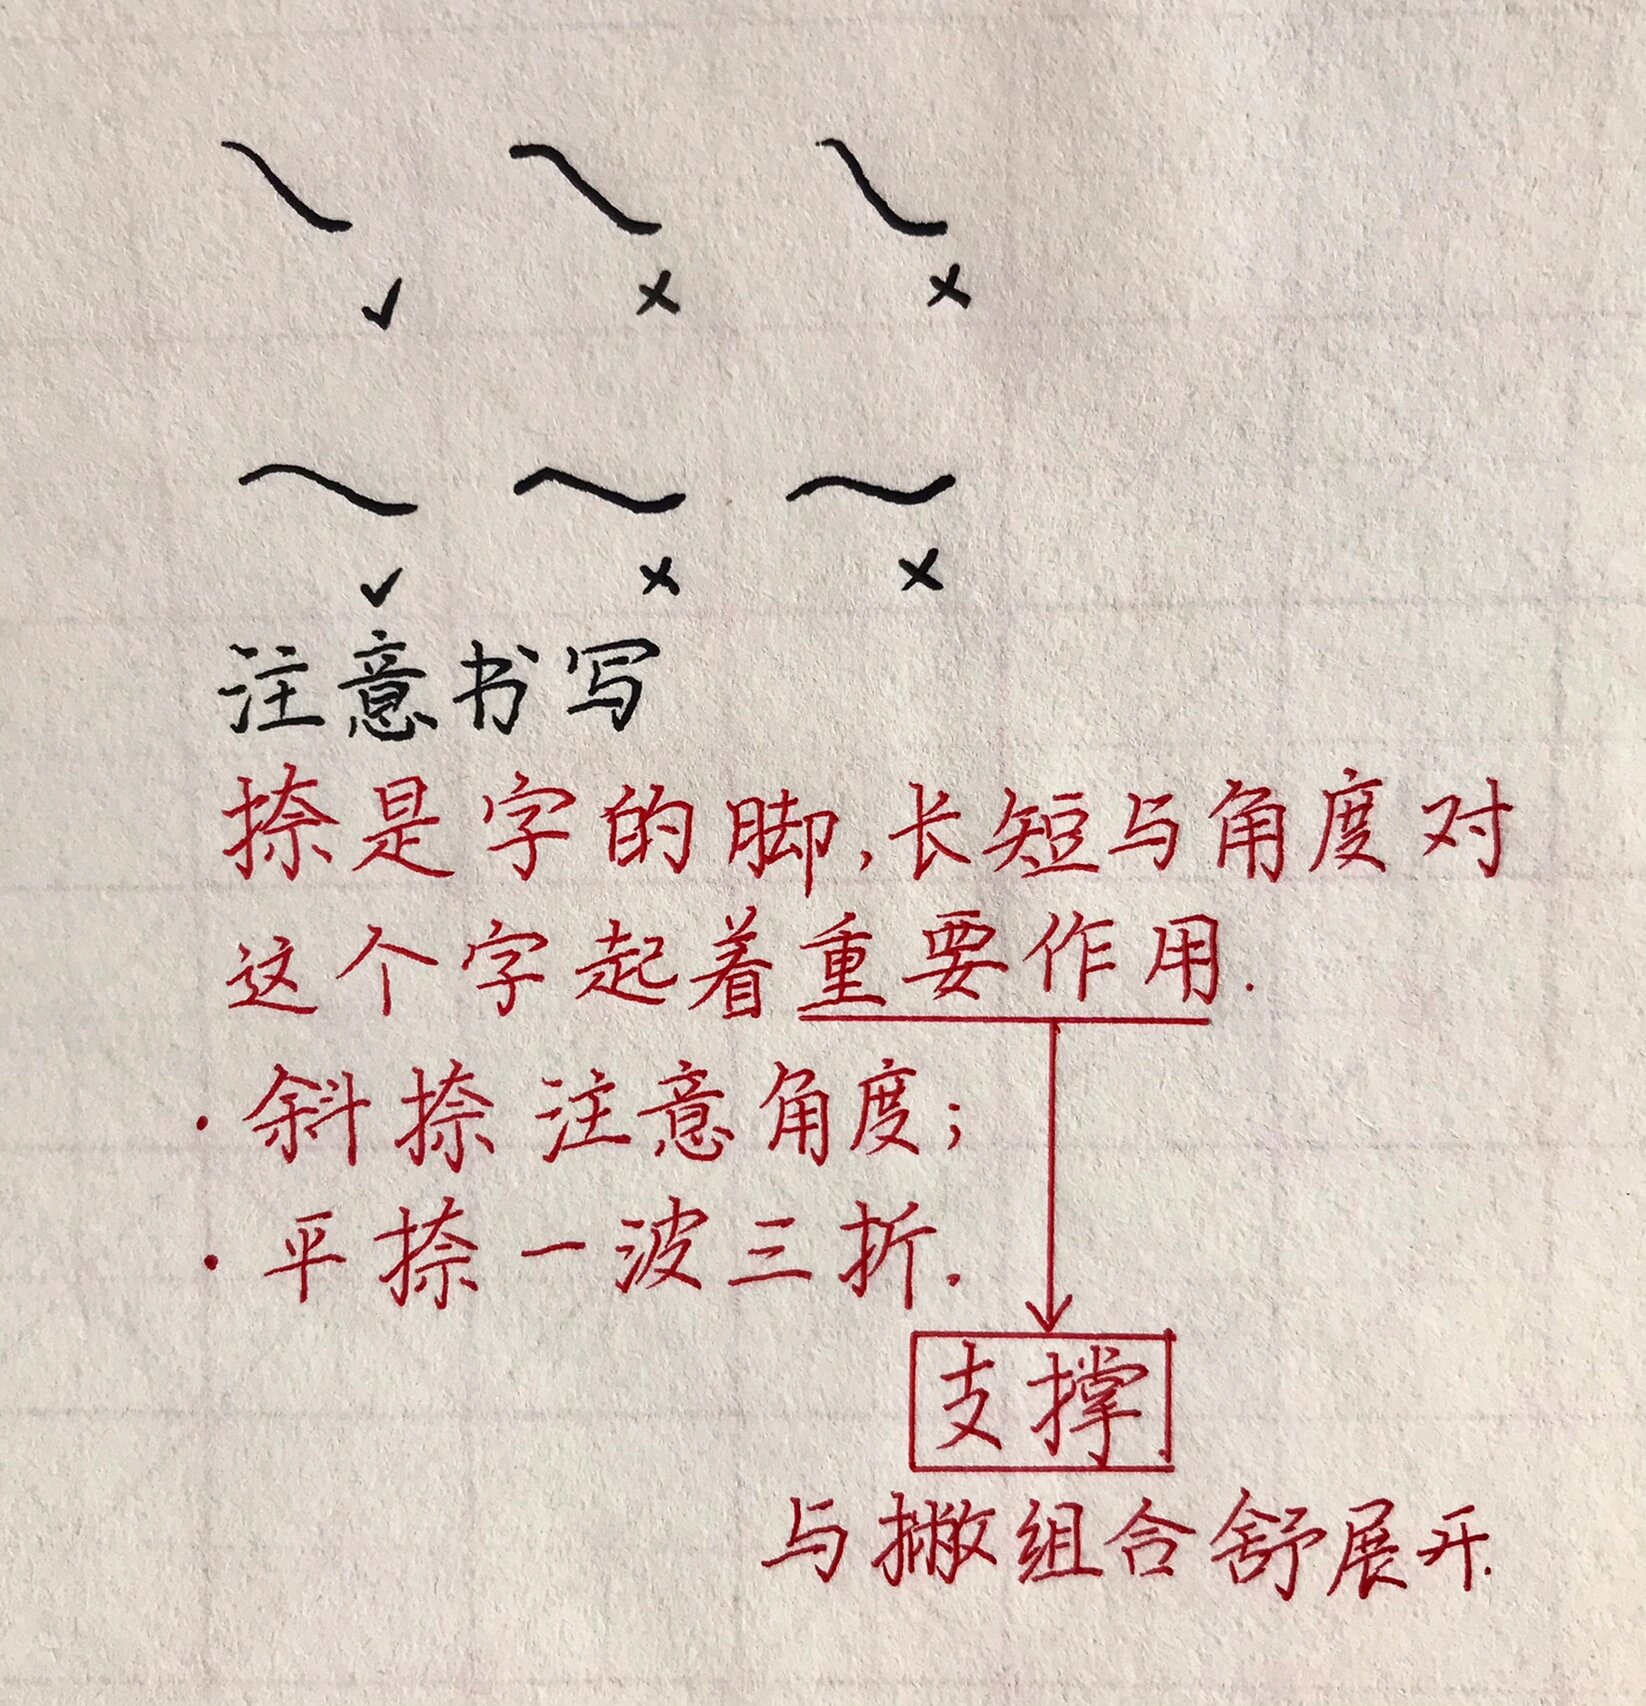 注意书写
捺是字的脚,长短与角度对
这个字起着重要作用.
·斜捺注意角度;
·平捺一波三折.
支撑.
与撇组合舒展开.